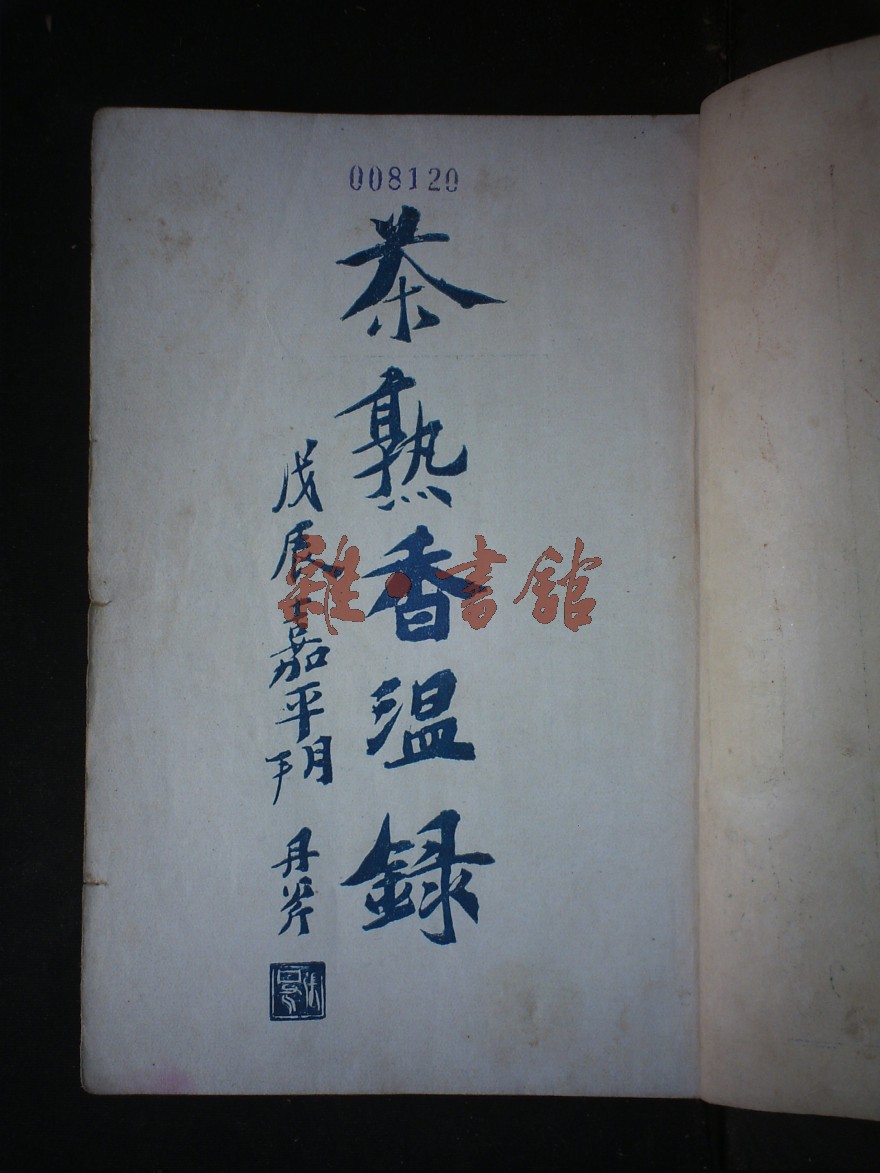 008120
茶熟香温録
戊辰嘉平朔
丹斧
雜·書館